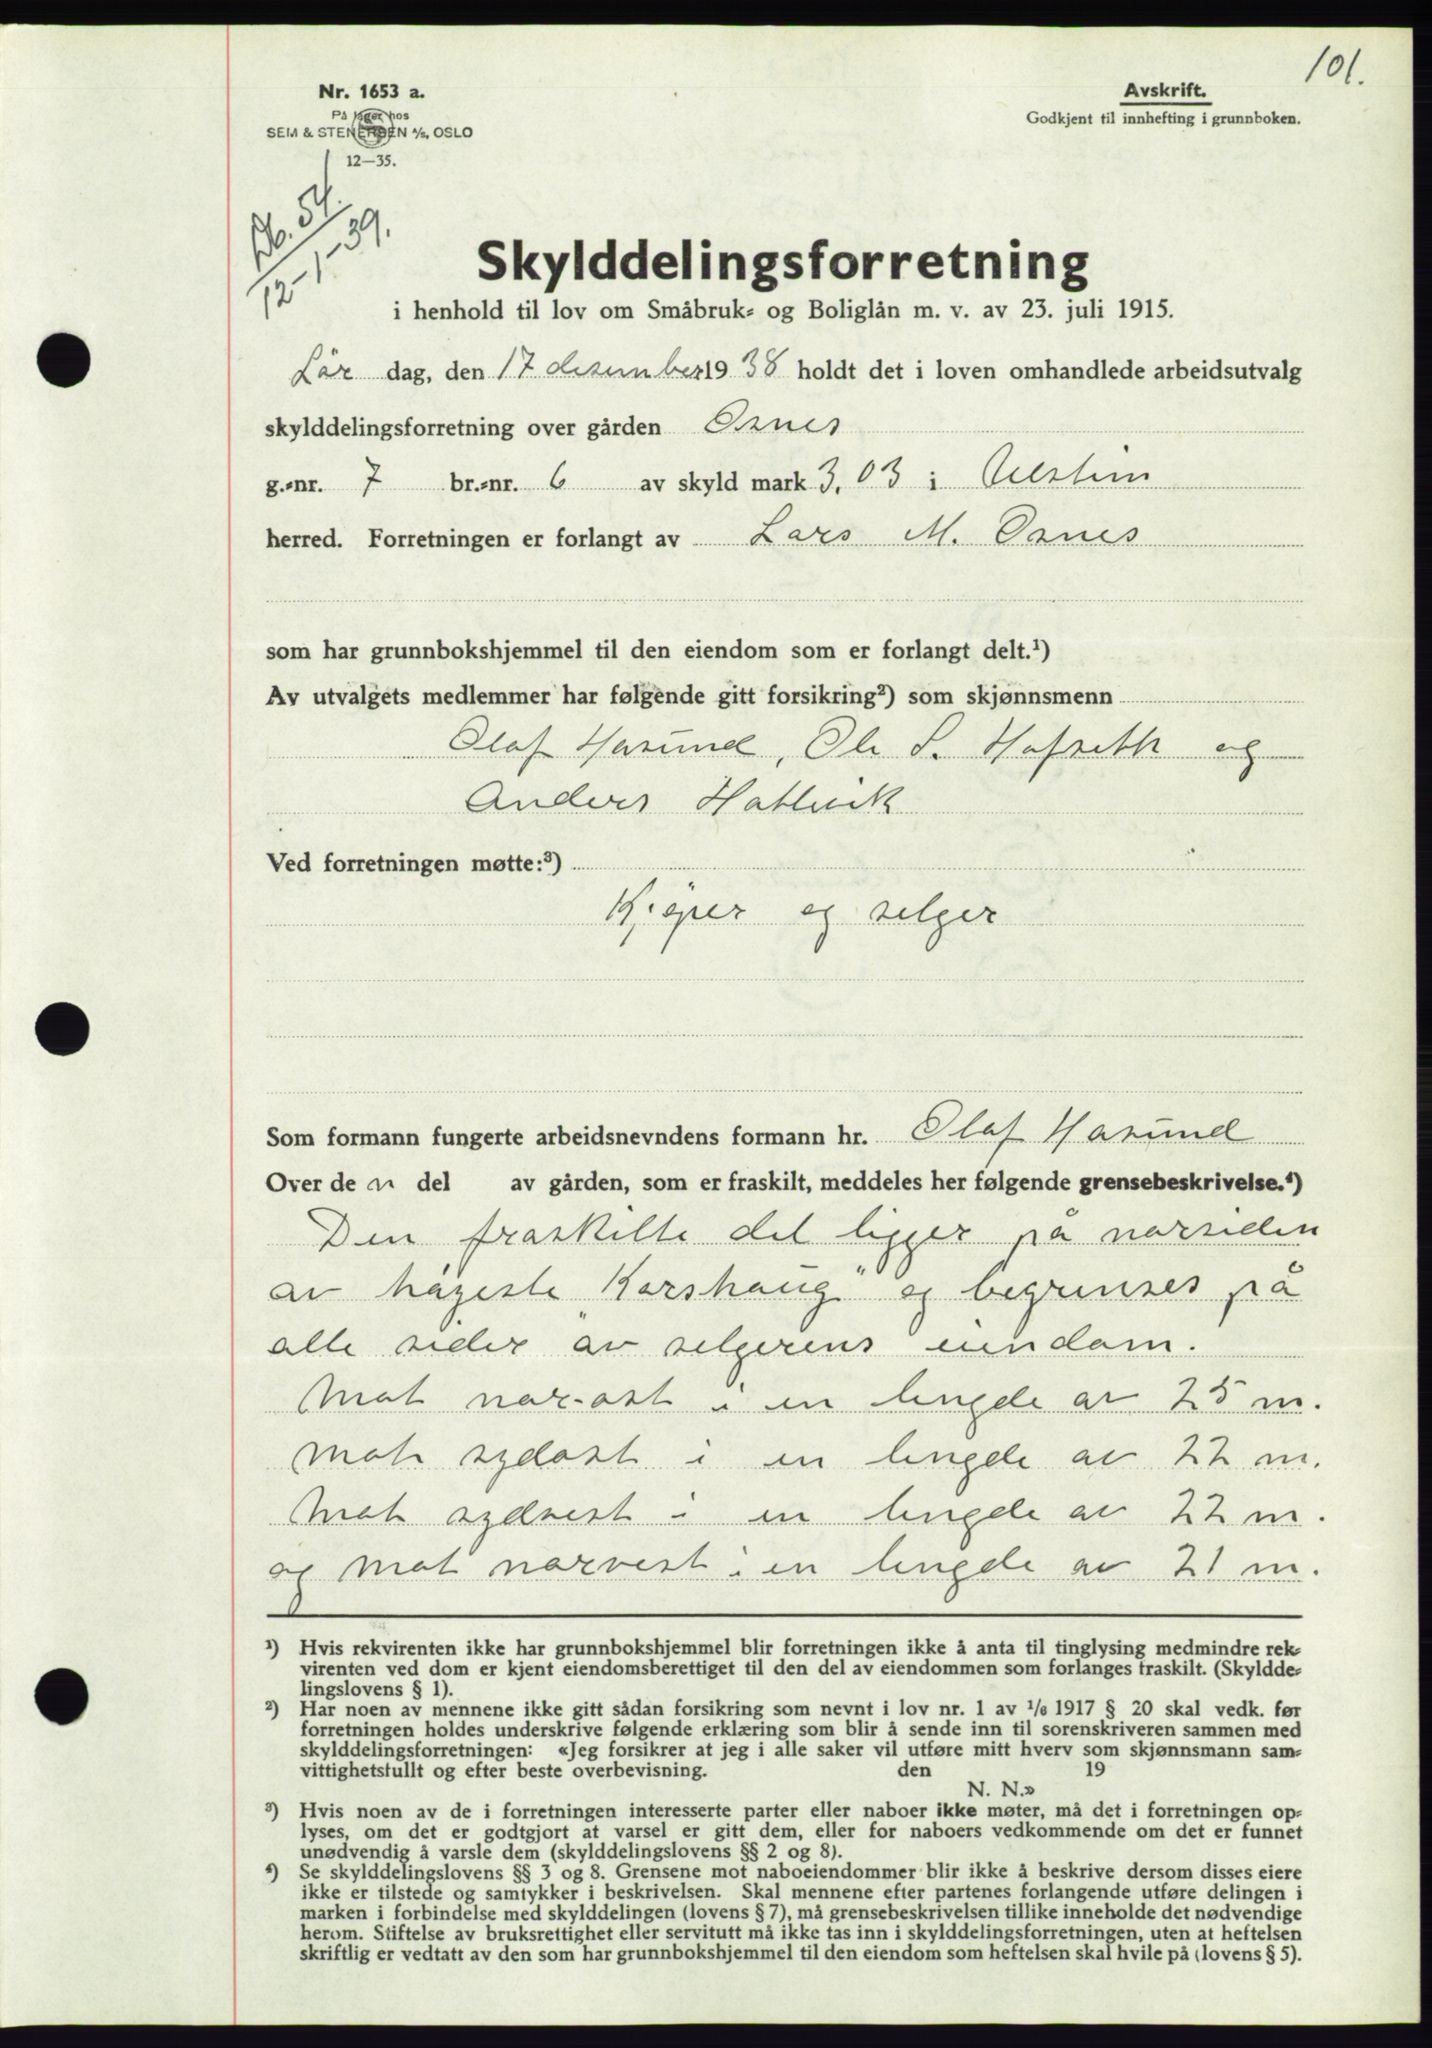 101.
Nr. 1653 a.
På lager hos
SEM & STENERSEN A/S, OSLO
12—35.
Avskrift.
Godkjent til innhefting i grunnboken.
Db. 54.
12-1-39.
Skylddelingsforretning
i henhold til lov om Småbruk- og Boliglån m. v. av 23. juli 1915.
Lör dag, den 17 desember 1938 holdt det i loven omhandlede arbeidsutvalg
skylddelingsforretning over gården Osnes
g.-nr. 7 br.-nr. 6 av skyld mark 3,03 i Ulstein
herred. Forretningen er forlangt av Lars M. Osnes
som har grunnbokshjemmel til den eiendom som er forlangt delt.¹)
Av utvalgets medlemmer har følgende gitt forsikring²) som skjønnsmenn
Olaf Hasund, Ole S. Hofseth og
Anders Hatlevik
Ved forretningen møtte:³)
Kjöper og selger
Som formann fungerte arbeidsnevndens formann hr. Olaf Hasund
Over den del av gården, som er fraskilt, meddeles her følgende grensebeskrivelse.⁴)
Den fraskilte del ligger på norsiden
av högeste „Korshaug" og begrenses på
alle sider av selgerens eiendom.
Mot nor-ost i en lengde av 25 m.
Mot sydost i en lengde av 22 m.
Mot sydvest i en lengde av 22 m.
og mot norvest i en lengde av 21 m.
¹) Hvis rekvirenten ikke har grunnbokshjemmel blir forretningen ikke å anta til tinglysing medmindre rek-
virenten ved dom er kjent eiendomsberettiget til den del av eiendommen som forlanges fraskilt. (Skyldde-
lingslovens § 1).
²) Har noen av mennene ikke gitt sådan forsikring som nevnt i lov nr. 1 av 1/6 1917 § 20 skal vedk. før
forretningen holdes underskrive følgende erklæring som blir å sende inn til sorenskriveren sammen med
skylddelingsforretningen: «Jeg forsikrer at jeg i alle saker vil utføre mitt hverv som skjønnsmann sam-
vittighetsfullt og efter beste overbevisning. den 19
N. N.»
³) Hvis noen av de i forretningen interesserte parter eller naboer ikke møter, må det i forretningen op-
lyses, om det er godtgjort at varsel er gitt dem, eller for naboers vedkommende om det er funnet
unødvendig å varsle dem (skylddelingslovens §§ 2 og 8).
⁴) Se skylddelingslovens §§ 3 og 8. Grensene mot naboeiendommer blir ikke å beskrive dersom disses eiere
ikke er tilstede og samtykker i beskrivelsen. Skal mennene efter partenes forlangende utføre delingen i
marken i forbindelse med skylddelingen (lovens § 7), må grensebeskrivelsen tillike inneholde det nødvendige
herom. Stiftelse av bruksrettighet eller servitutt må ikke tas inn i skylddelingsforretningen, uten at heftelsen
skriftlig er vedtatt av den som har grunnbokshjemmel til den eiendom som heftelsen skal hvile på (lovens § 5).